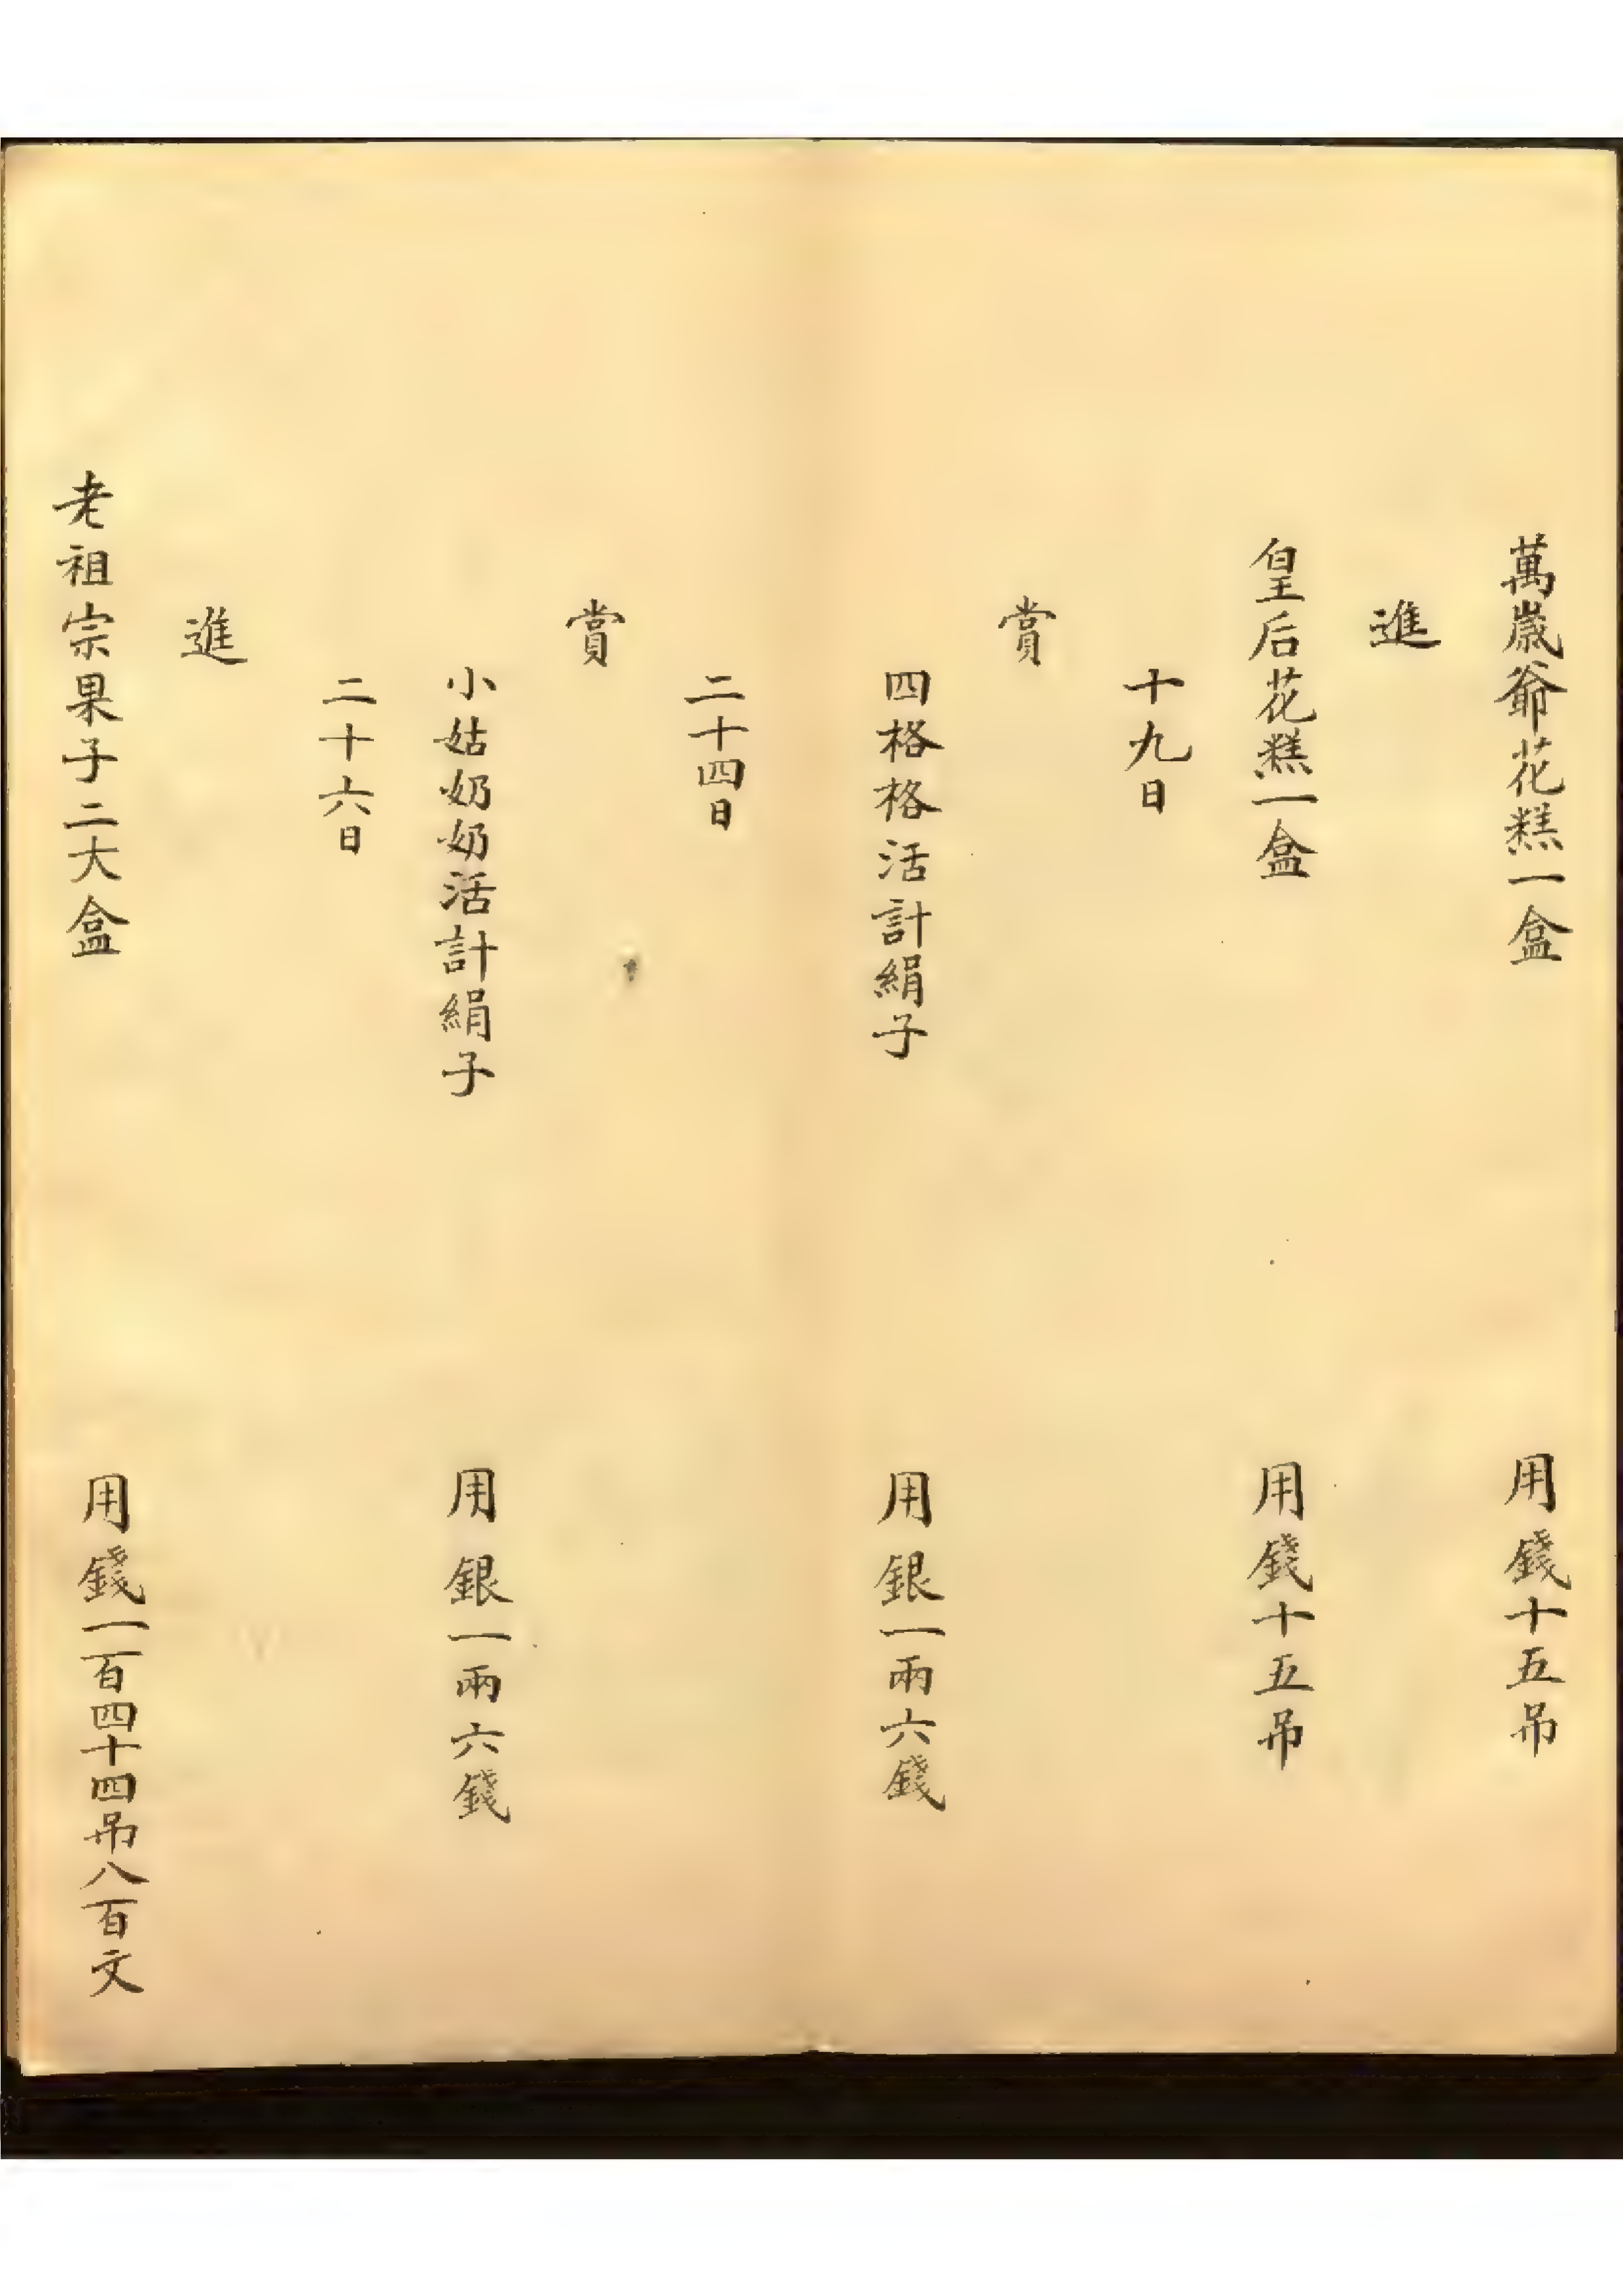 萬歲爺花糕一盒 用錢十五吊
進
皇后花糕一盒 用錢十五吊
十九日
賞
四格格活計絹子 用銀一兩六錢
二十四日
賞
小姑奶奶活計絹子 用銀一兩六錢
二十六日
進
老祖宗果子二大盒 用錢一百四十四吊八百文